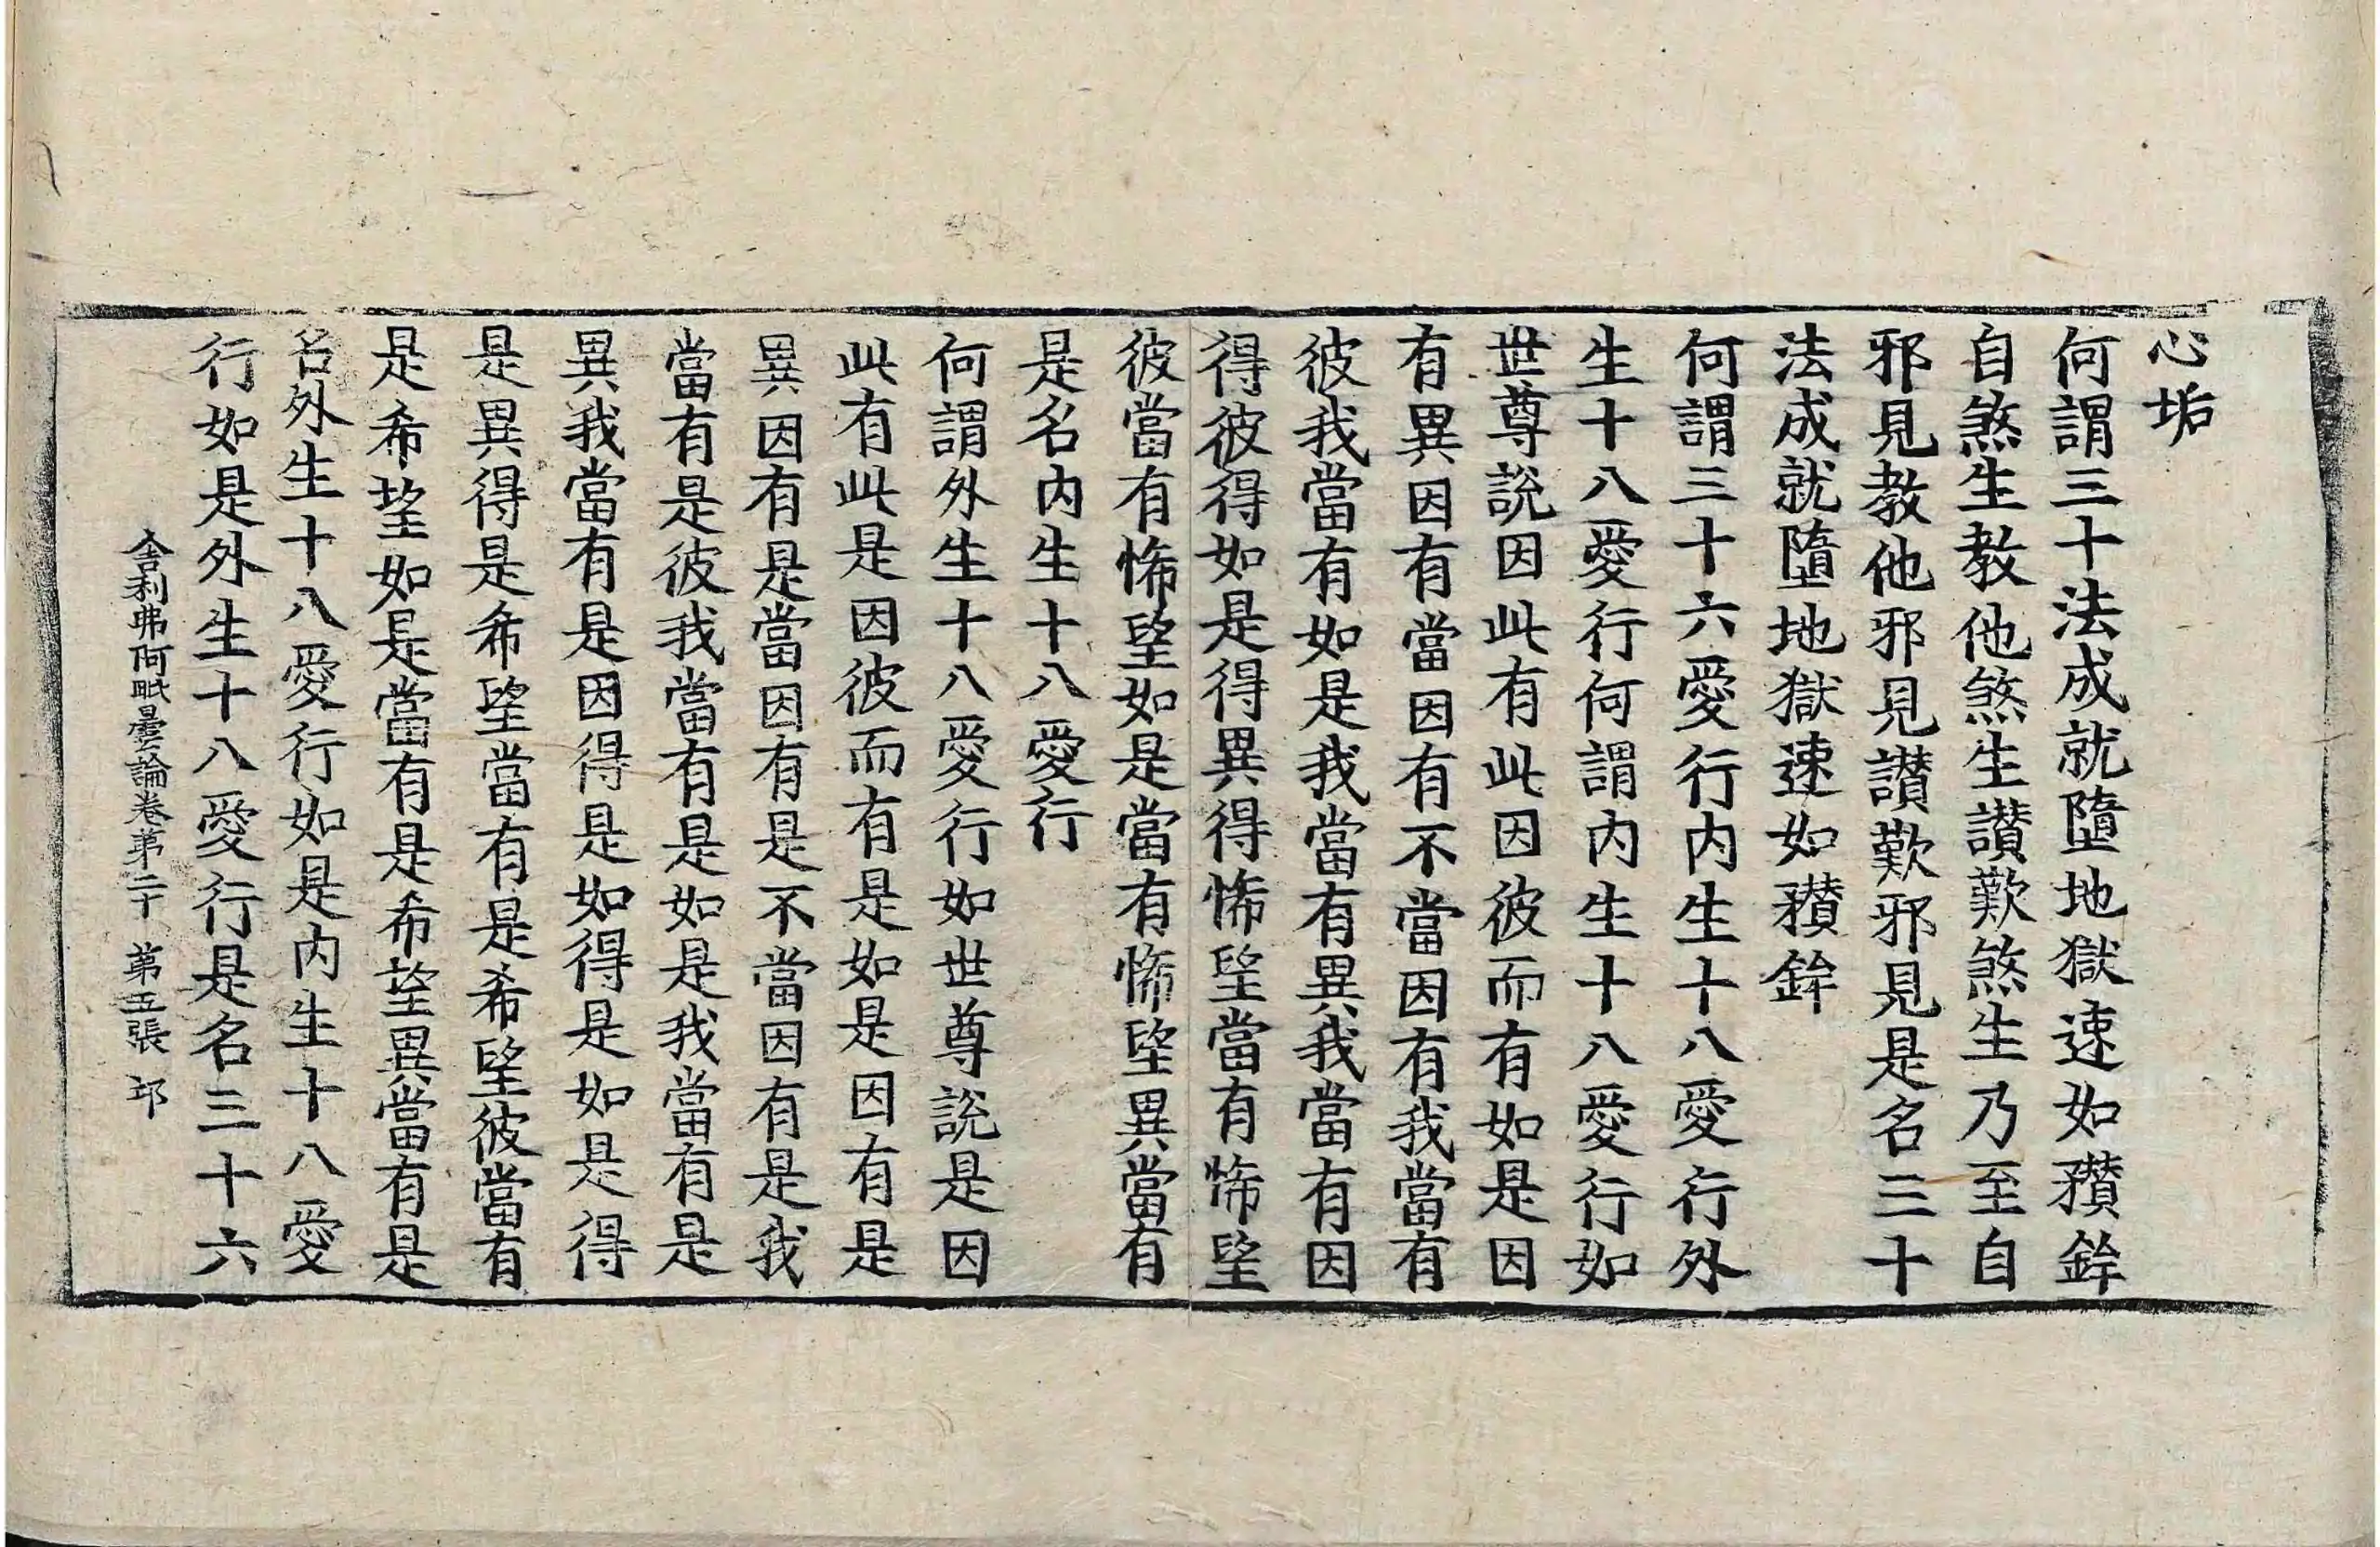 心垢
何謂三十法成就墮地獄速如䂎鉾
自煞生教他煞生讃歎煞生乃至自
邪見教他邪見讃歎邪見是名三十
法成就墮地獄速如䂎鉾
何謂三十六愛行内生十八愛行外
生十八愛行何謂内生十八愛行如
世尊說因此有此因彼而有如是因
有異因有當因有不當因有我當有
彼我當有如是我當有異我當有因
得彼得如是得異得悕望當有悕望
彼當有悕望如是當有悕望異當有
是名内生十八愛行
何謂外生十八愛行如世尊說是因
此有此是因彼而有是如是因有是
異因有是當因有是不當因有是我
當有是彼我當有是如是我當有是
異我當有是因得是如得是如是得
是異得是希望當有是希望彼當有
是希望如是當有是希望異當有是
名外生十八愛行如是内生十八愛
行如是外生十八愛行是名三十六
舍利弗阿毗曇論卷第二十 第五張 邛